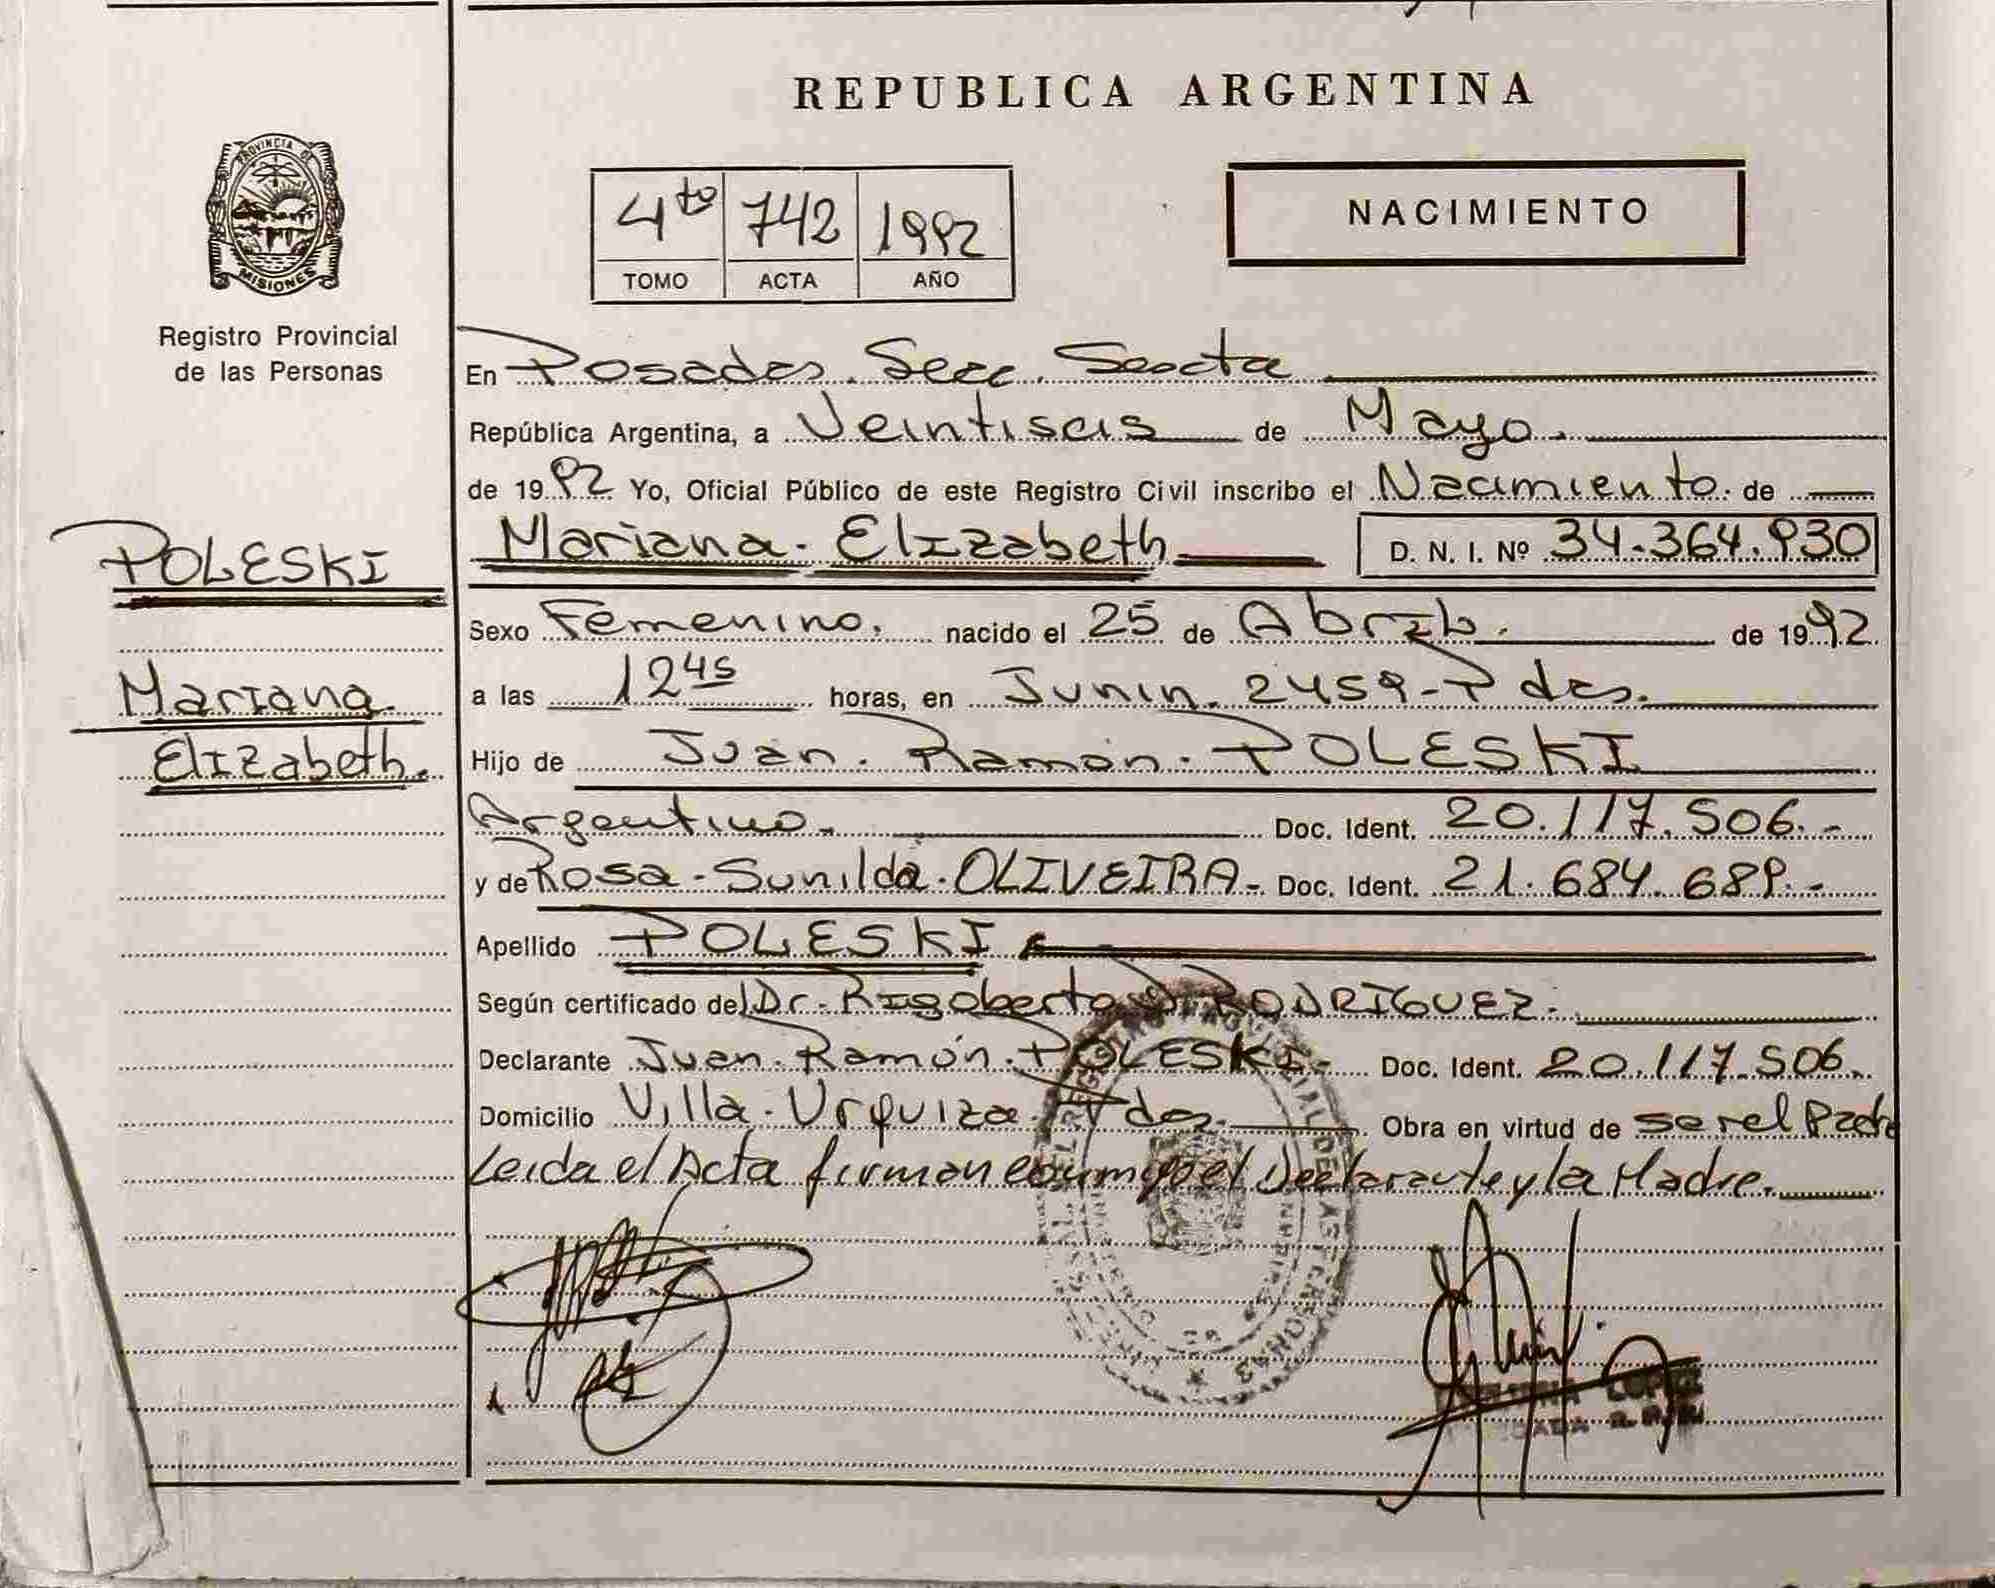 REPUBLICA ARGENTINA
PROVINCIA DE
MISIONES
Registro Provincial
de las Personas
4to 742 1992
TOMO ACTA AÑO
NACIMIENTO
En Posadas. Secc. Sexta
República Argentina, a Veintiseis de Mayo.
de 1992 Yo, Oficial Público de este Registro Civil inscribo el Nacimiento. de
Mariana. Elizabeth D. N. I. Nº 34.364.930
POLESKI
Mariana.
Elizabeth.
Sexo Femenino. nacido el 25 de Abril. de 1992
a las 12 45 horas, en Junin. 2459-Pdas.
Hijo de Juan. Ramón. POLESKI
Argentino. Doc. Ident. 20.117.506.-
y de Rosa-Sunilda. OLIVEIRA- Doc. Ident. 21.684.689.-
Apellido POLESKI
Según certificado del Dr. Rigoberto RODRIGUEZ.
Declarante Juan. Ramón. POLESKI- Doc. Ident. 20.117.506.
Domicilio Villa. Urquiza. Pdas. Obra en virtud de ser el Padre
Leida el Acta firman conmigo el Declarante y la Madre.
REGISTRO PROVINCIAL DE LAS PERSONAS
LOPEZ